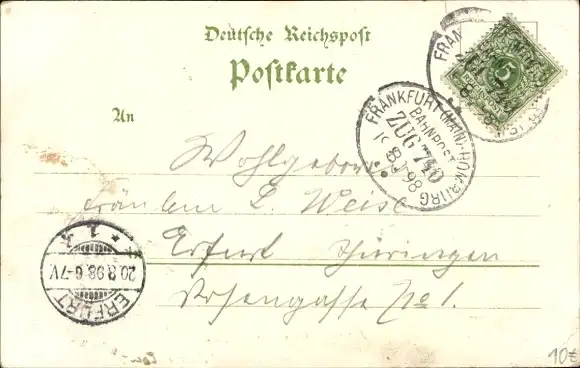 Deutsche Reichspost
Postkarte
An
FRANKFURT (MAIN)-HOMBURG
BAHNPOST
ZUG 740
8 98
5
Wohlgeboren
Fräulein L. Weise
Erfurt Thüringen
No 1.
ERFURT
20.8.98.6-7V.
* 1 *
10€